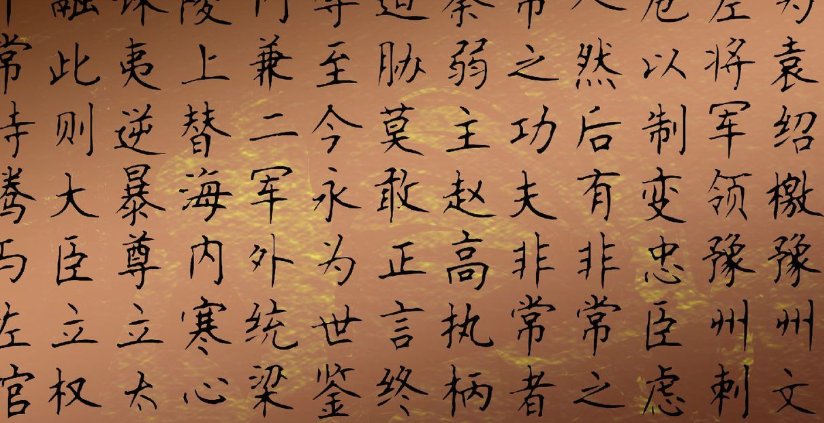 为袁绍檄豫州文
左将军领豫州刺
危以制变忠臣虑
人然后有非常之
常之功夫非常者
秦弱主赵高执柄
迫胁莫敢正言终
辱至今永为世鉴
内兼二军外统梁
陵上替海内寒心
诛夷逆暴尊立太
融此则大臣立权
常左